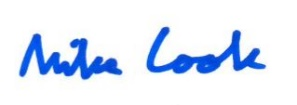 Mike Cook